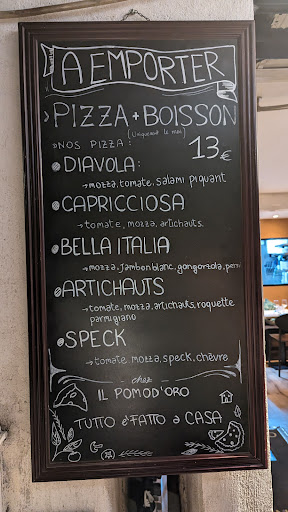 A EMPORTER
PIZZA + BOISSON
(Uniquement le midi)
» NOS PIZZA : 13€
DIAVOLA :
→ mozza, tomate, salami piquant
CAPRICCIOSA
→ tomate, mozza, artichauts.
BELLA ITALIA
→ mozza, jambon blanc, gongorzola,
ARTICHAUTS
→ tomate, mozza, artichauts, roquette
parmigiano
SPECK
→ tomate mozza, speck, chèvre
chez
IL POMOD'ORO
TUTTO è FATTO a CASA